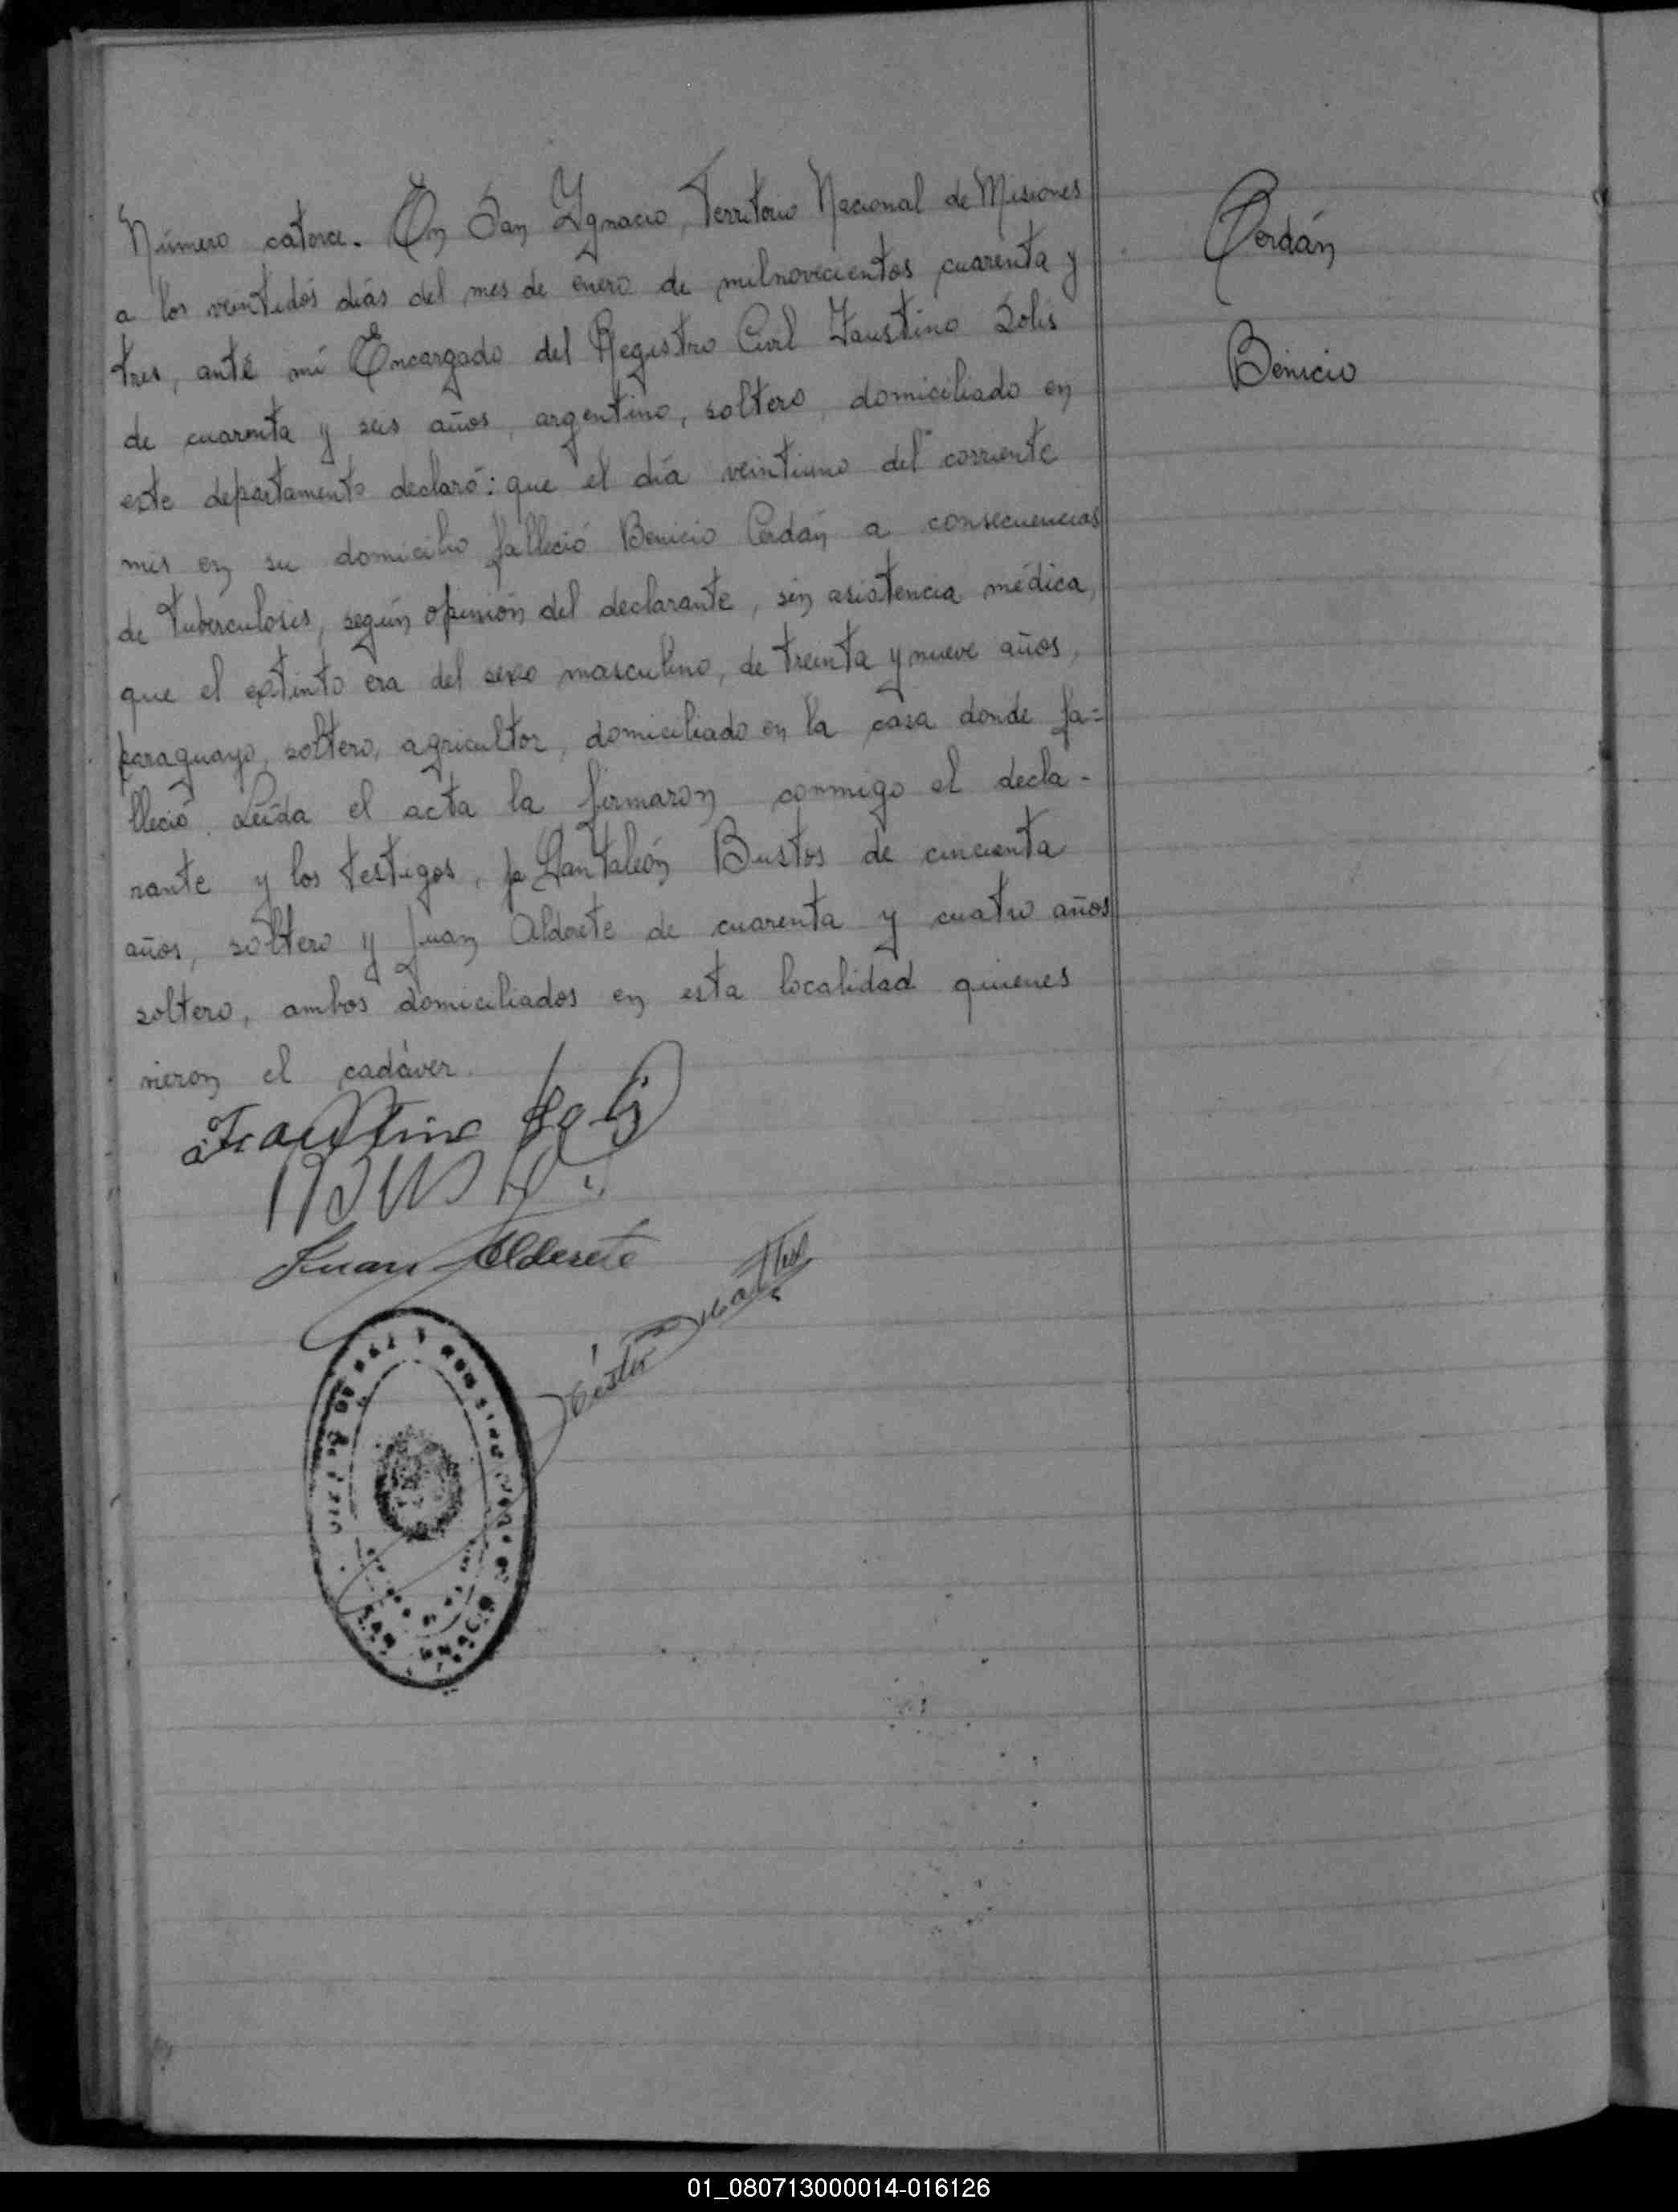 Número catorce. En San Ygnacio, Territorio Nacional de Misiones
a los veintidós días del mes de enero de milnovecientos cuarenta y
tres, ante mí Encargado del Registro Civil Faustino Solis
de cuarenta y seis años, argentino, soltero, domiciliado en
este departamento declaró: que el día veintiuno del corriente
mes en su domicilio falleció Benicio Cerdán a consecuencias
de tuberculosis, según opinión del declarante, sin asistencia médica,
que el extinto era del sexo masculino, de treinta y nueve años,
paraguayo, soltero, agricultor, domiciliado en la casa donde fa=
lleció. Leída el acta la firmaron conmigo el decla-
rante y los testigos, Pantaleón Bustos de cincuenta
años, soltero y Juan Alderete de cuarenta y cuatro años
soltero, ambos domiciliados en esta localidad quienes
vieron el cadáver.
Faustino Solis
Juan Alderete
Cerdán
Benicio
01_080713000014-016126